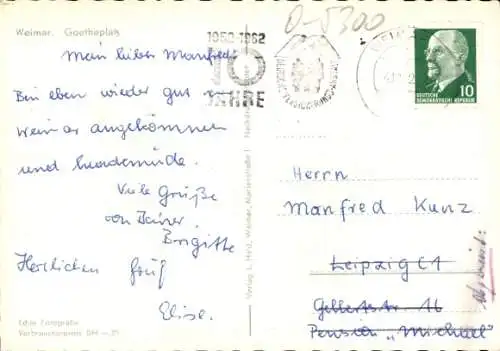 Weimar. Goetheplatz
Mein lieber Manfred!
Bin eben wieder gut in
Weimar angekommen
und hundemüde.
Viele Grüße
von Deiner
Brigitte
Herzlichen Gruß
Elise.
Echte Fotografie
Verbraucherpreis DM
Verlag L. Held, Weimar, Marienstraße 1
1952-1962
10
JAHRE
0-5300
DEUTSCHE
DEMOKRATISCHE REPUBLIK
10
Herrn
Manfred Kunz
Leipzig C1
Gellertstr. 16
Pension „Michael"